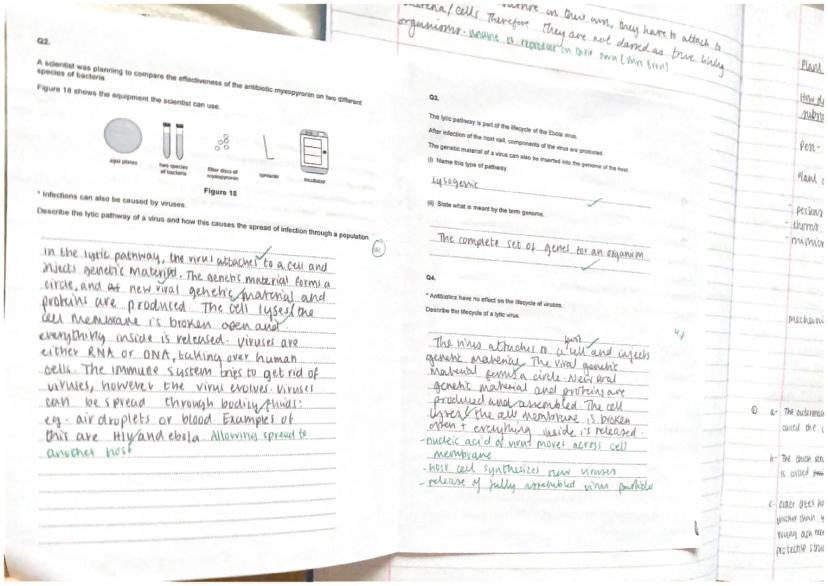 nature on their own, they have to attach to
cells Therefore They are not classed as true living
organisms. Unable to reproduce on their own (Mrs Bren)
Q2.
A scientist was planning to compare the effectiveness of the antibiotic myxopyronin on two different
species of bacteria.
Figure 18 shows the equipment the scientist can use.
agar plates
two species
of bacteria
filter discs of
myxopyronin
spreader
incubator
Figure 18
* Infections can also be caused by viruses.
Describe the lytic pathway of a virus and how this causes the spread of infection through a population.
(6)
in the lytic pathway, the virus attaches to a cell and
injects genetic material. The genetic material forms a
circle, and new viral genetic material and
proteins are produced. The cell lyses/the
cell membrane is broken open and
everything inside is released. Viruses are
either RNA or DNA, taking over human
cells. The immune system tries to get rid of
viruses, however the virus evolves. Viruses
can be spread through bodily fluids:
eg. air droplets or blood. Examples of
this are HIV and ebola. Allowing spread to
another host
Q3.
The lytic pathway is part of the lifecycle of the Ebola virus.
After infection of the host cell, components of the virus are produced.
The genetic material of a virus can also be inserted into the genome of the host.
(i) Name this type of pathway.
Lysogenic
(ii) State what is meant by the term genome.
The complete set of genes for an organism
Q4.
* Antibiotics have no effect on the lifecycle of viruses.
Describe the lifecycle of a lytic virus.
4/
host
The virus attaches to a cell and injects
genetic material. The viral genetic
material forms a circle. New viral
genetic material and proteins are
produced and assembled. The cell
lyses/the cell membrane is broken
open + everything inside is released.
-nucleic acid of virus moves across cell
membrane
-host cell synthesizes new viruses
- release of fully assembled virus particle
Plant
Plant
persons
- thorns
mechani
a- The outermos
called the
b- The thick
is called
c- older trees ha
thicker than
young ash
protective struc